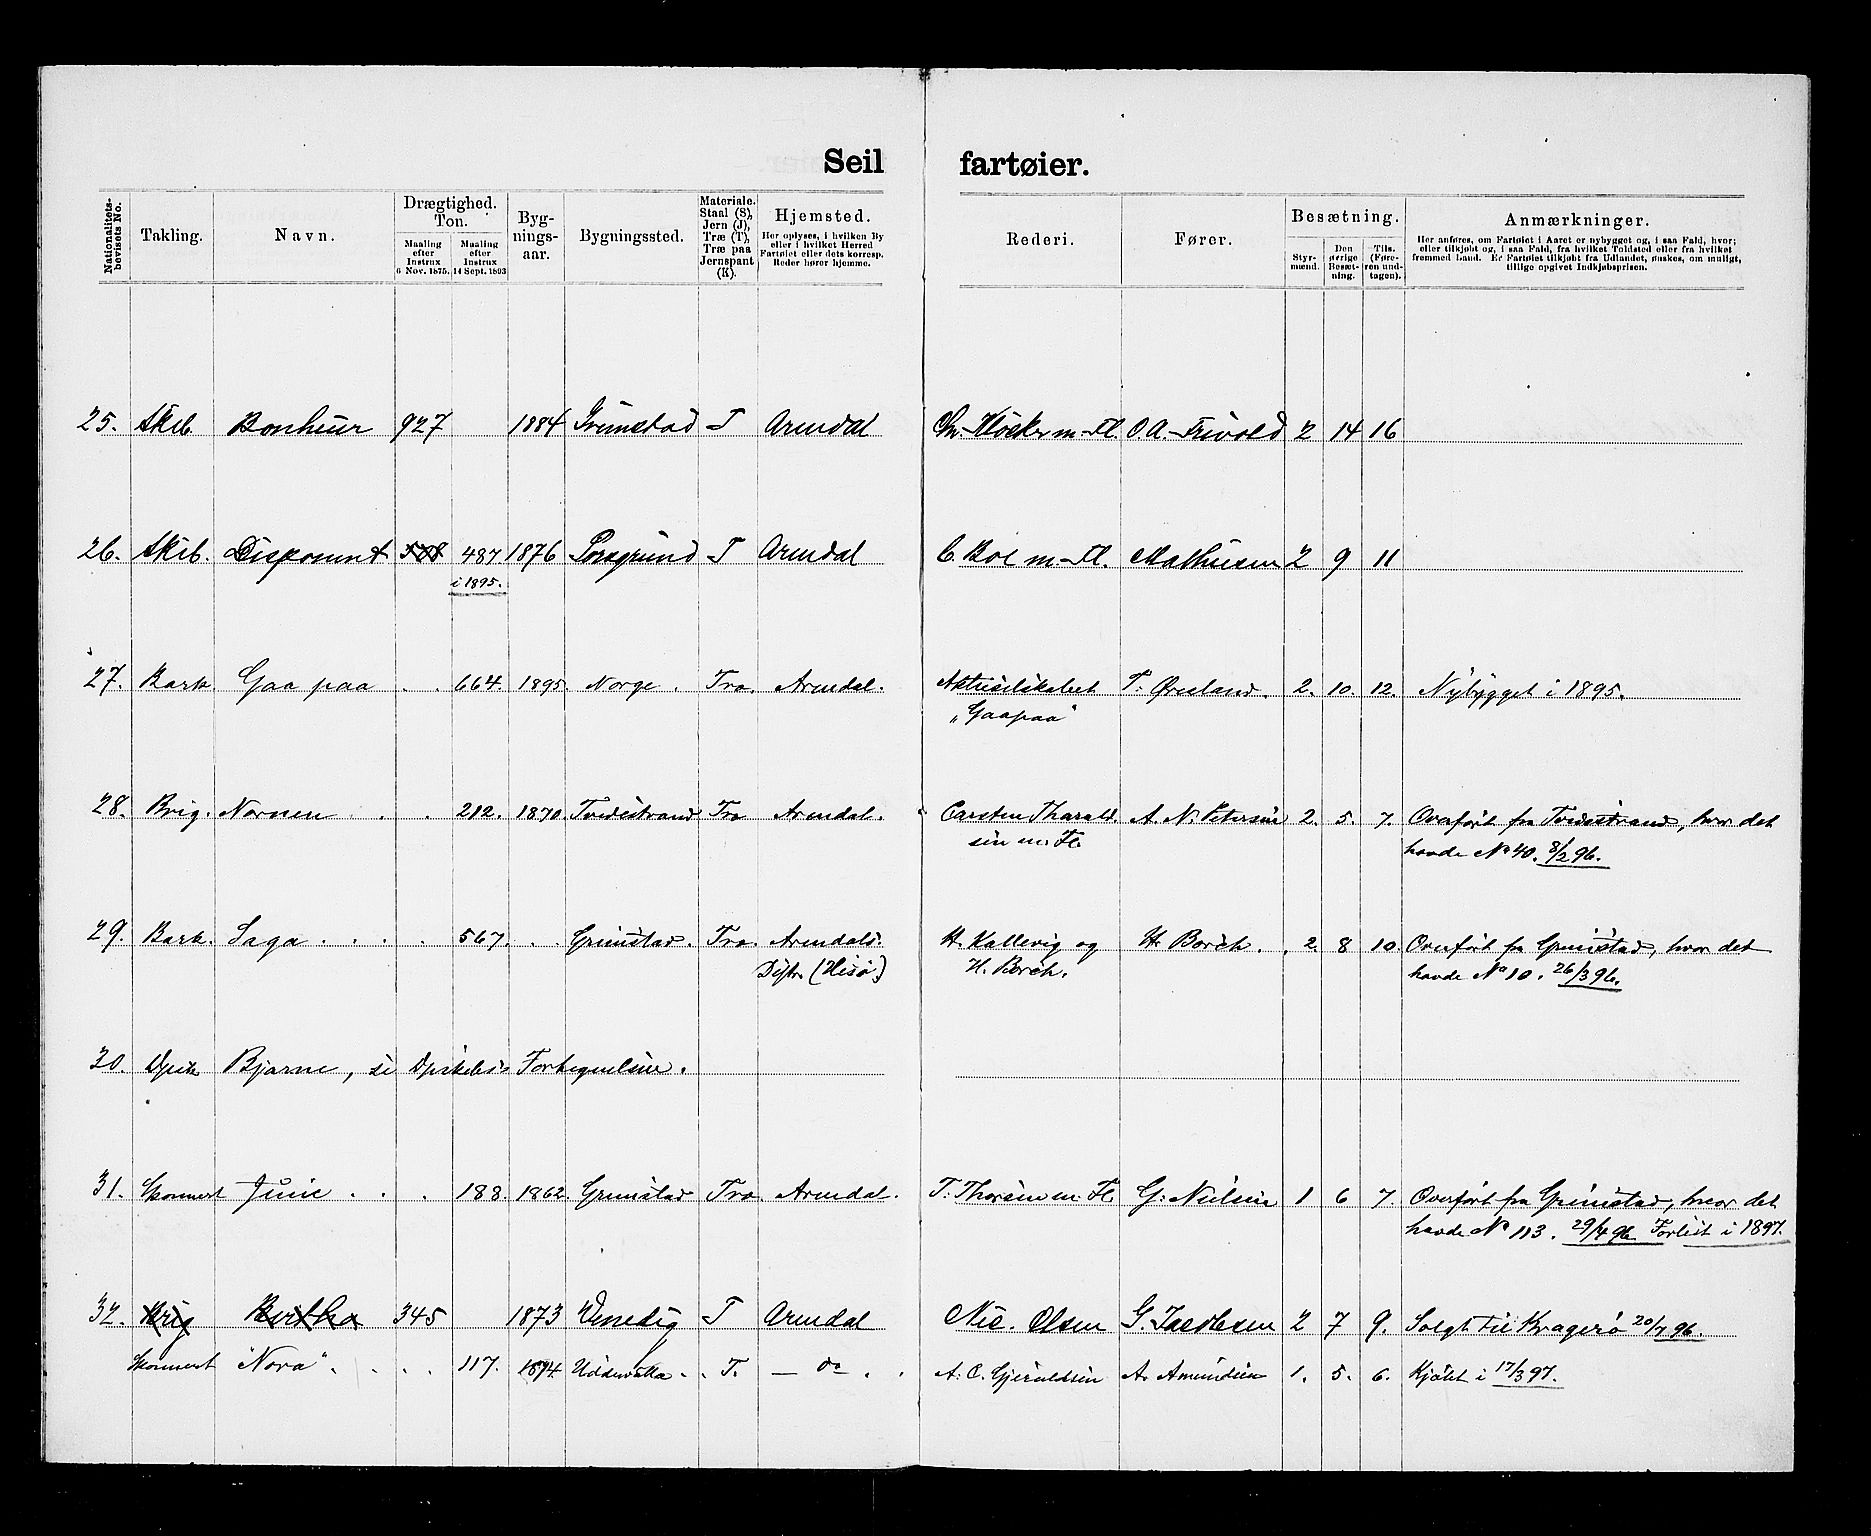 Seil fartøier.
Nationalitets-bevisets No.
Takling.
Navn.
Drægtighed. Ton.
Maaling efter Instrux 6 Nov. 1875.
Maaling efter Instrux 14 Sept. 1893
Byg-nings-aar.
Bygningssted.
Materiale. Staal (S), Jern (J), Træ (T), Træ paa Jernspant (K).
Hjemsted.
Her oplyses, i hvilken By eller i hvilket Herred Fartøiet eller dets korresp. Reder hører hjemme.
Rederi.
Fører.
Besætning.
Styr-mænd.
Den øvrige Besæt-ning.
Tils. (Føre-ren und-tagen).
Anmærkninger.
Her anføres, om Fartøiet i Aaret er nybygget og, i saa Fald, hvor;
eller tilkjøbt og, i saa Fald, fra hvilket Toldsted eller fra hvilket
fremmed Land. Er Fartøiet tilkjøbt fra Udlandet, ønskes, om muligt,
tillige opgivet Indkjøbsprisen.
25. Skib. Bonheur 927 1884 Grimstad T Arendal Chr. Kløcker m. Fl. O. A. Frivold 2 14 16
26. Skib. 487 1876 Porsgrund T Arendal C. Boe m. Fl. Mathisen 2 9 11
i 1895.
27. Bark. Gaa paa . . 664. 1895. Norge. Træ. Arendal. Aktieselskabet T. Øresland. 2. 10. 12. Nybygget i 1895.
"Gaapaa"
28. Brig. Nornen . . 212. 1870. Tvedestrand Træ Arendal. Carsten Tharald- A. N. Petersen 2. 5. 7. Overført fra Tvedestrand, hvor det
sen m. Fl. havde No 40. 8/2 96.
29. Bark. Saga . . . . 567. . . Grimstad. Træ. Arendals. H. Kallevig og H. Borch. . 2. 8 10. Overført fra Grimstad, hvor det
Distr. (Hisø) H. Borch. havde No 10. 26/3 96.
30. Dpsk Bjarne, se Dpskibs Fortegnelsen.
31. Skonnert Junie . . . 188. 1862. Grimstad Træ. Arendal. T. Thorsen m. Fl. G. Nielsen 1 6 7. Overført fra Grimstad, hvor det
havde No 113. 29/4 96. Forlist i 1897.
32. Brig Bertha 345 1873 Venedig T Arendal Nic. Olsen G. Jacobsen 2 7 9. Solgt til Kragerø 20/7 96.
Skonnert "Nora". . . . 117. 1874. Uddevalla. . T. — do — . . A. C. Gjeruldsen A. Amundsen 1. 5. 6. Kjøbt i 17/3 97.